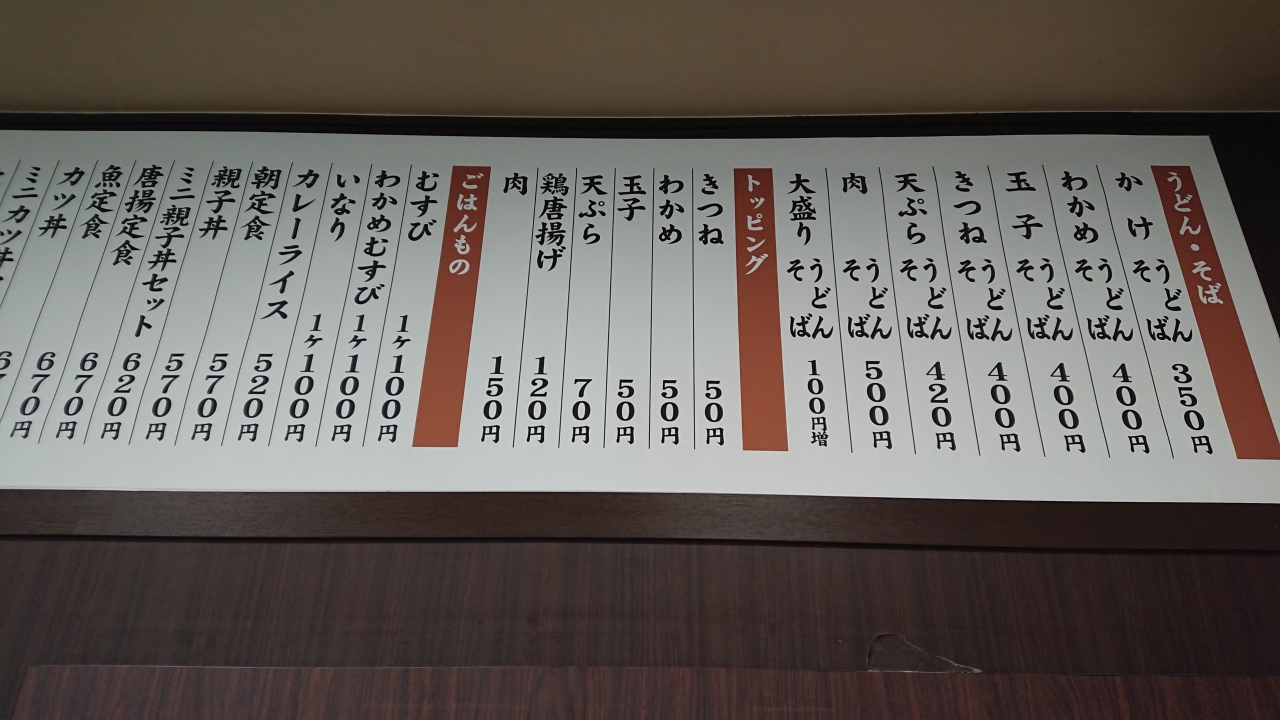 うどん・そば
かけ うどん そば 350円
わかめ うどん そば 400円
玉子 うどん そば 400円
きつね うどん そば 400円
天ぷら うどん そば 420円
肉 うどん そば 500円
大盛り うどん そば 100円増
トッピング
きつね 50円
わかめ 50円
玉子 50円
天ぷら 70円
鶏唐揚げ 120円
肉 150円
ごはんもの
むすび 1ヶ100円
わかめむすび 1ヶ100円
いなり 1ヶ100円
カレーライス 520円
朝定食 570円
親子丼 570円
ミニ親子丼セット 620円
唐揚定食 670円
魚定食 670円
カツ丼
ミニカツ丼